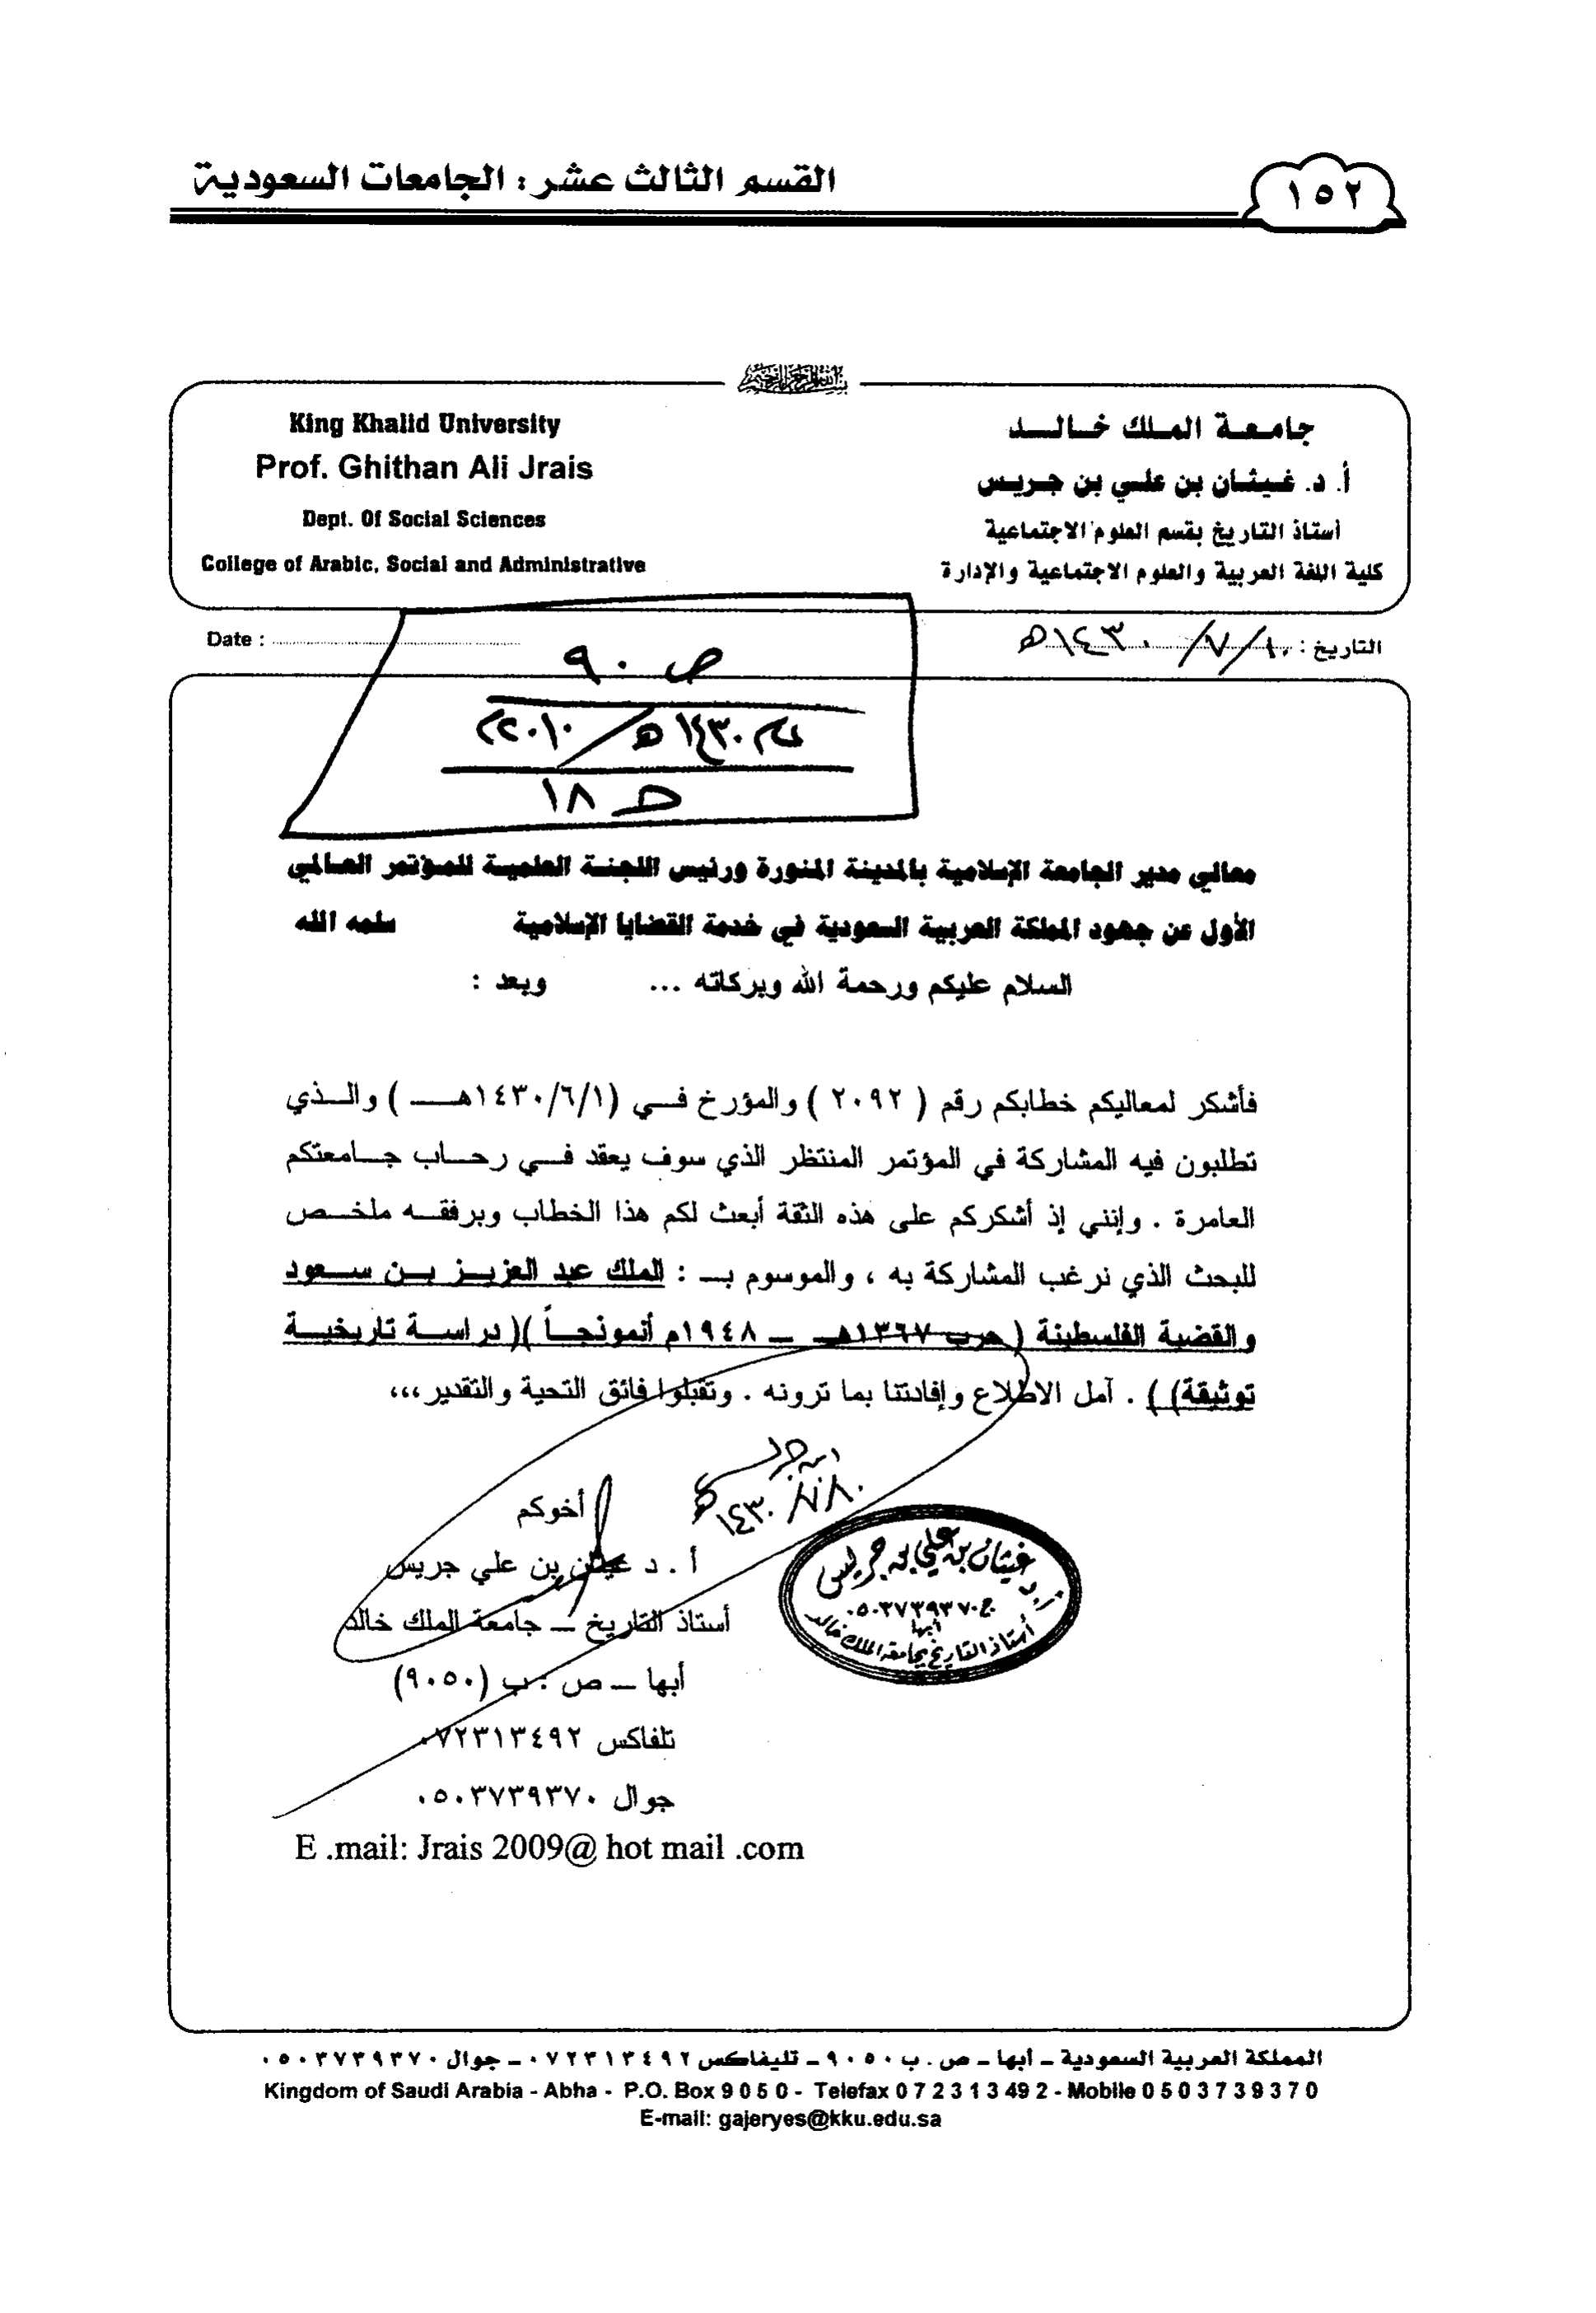 ١٥٢
القسم الثالث عشر : الجامعات السعودية
بسم الله الرحمن الرحيم
جامعة الملك خالد
أ. د. غيثان بن علي بن جريس
أستاذ التاريخ بقسم العلوم الاجتماعية
كلية اللغة العربية والعلوم الاجتماعية والإدارة
King Khalid University
Prof. Ghithan Ali Jrais
Dept. Of Social Sciences
College of Arabic, Social and Administrative
التاريخ : ١٠/٧/١٤٣٠هـ
Date :
ص ٩٠
١٤٣٠هـ/٢٠١٠م
١٨
معالي مدير الجامعة الإسلامية بالمدينة المنورة ورئيس اللجنة العلمية للمؤتمر العالمي
الأول عن جهود المملكة العربية السعودية في خدمة القضايا الإسلامية سلمه الله
السلام عليكم ورحمة الله وبركاته ... وبعد :
فأشكر لمعاليكم خطابكم رقم ( ٢٠٩٢ ) والمؤرخ في (١٤٣٠/٦/١هـ ) والذي
تطلبون فيه المشاركة في المؤتمر المنتظر الذي سوف يعقد في رحاب جامعتكم
العامرة . وإنني إذ أشكركم على هذه الثقة أبعث لكم هذا الخطاب وبرفقه ملخص
للبحث الذي نرغب المشاركة به ، والموسوم بـ : الملك عبد العزيز بن سعود
والقضية الفلسطينة ( حرب ١٣٦٧هـ – ١٩٤٨م أنموذجاً )( دراسة تاريخية
توثيقة) ) . آمل الاطلاع وإفادتنا بما ترونه . وتقبلوا فائق التحية والتقدير،،،
أخوكم
أ . د غيثان بن علي جريس
أستاذ التاريخ – جامعة الملك خالد
أبها – ص . ب (٩٠٥٠)
تلفاكس ٠٧٢٣١٣٤٩٢
جوال ٠٥٠٣٧٣٩٣٧٠
E .mail: Jrais 2009@ hot mail .com
ابن جريس
١٤٣٠هـ
أ.د غيثان بن علي بن جريس
ج ٠٥٠٣٧٣٩٣٧٠
أبها
أستاذ التاريخ بجامعة الملك خالد
المملكة العربية السعودية – أبها – ص . ب ٩٠٥٠ – تليفاكس ٠٧٢٣١٣٤٩٢ – جوال ٠٥٠٣٧٣٩٣٧٠
Kingdom of Saudi Arabia - Abha - P.O. Box 9 0 5 0 - Telefax 0 7 2 3 1 3 49 2 - Mobile 0 5 0 3 7 3 9 3 7 0
E-mail: gajeryes@kku.edu.sa